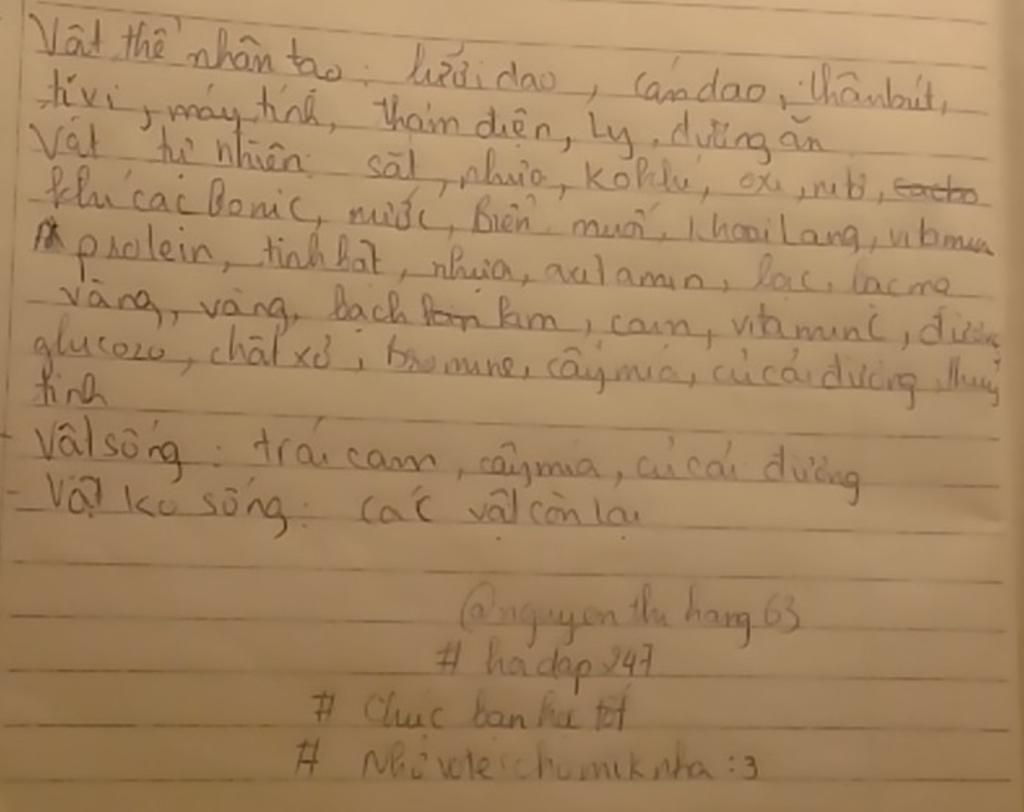 Vật thể nhân tạo: lưỡi dao, cán dao, thân bút,
tivi, máy tính, thảm điện, ly, đường ăn
Vật tự nhiên: sắt, nhựa, ko khí, oxi, nitơ, cacbo
khí cacbonic, nước, biển, muối, khoai lang, vitamin
protein, tinh bột, nhựa, axit amin, lạc,
vàng, vàng, bạch kim, cam, vitamin C, đường
glucozo, chất xơ, bromine, cây mía, củ cải đường, thuỷ
tinh
- Vật sống: trái cam, cây mía, củ cải đường
- Vật ko sống: các vật còn lại
@nguyenthuhang63
# hoidap247
# Chúc bạn học tốt
# Nhớ vote cho mik nha :3